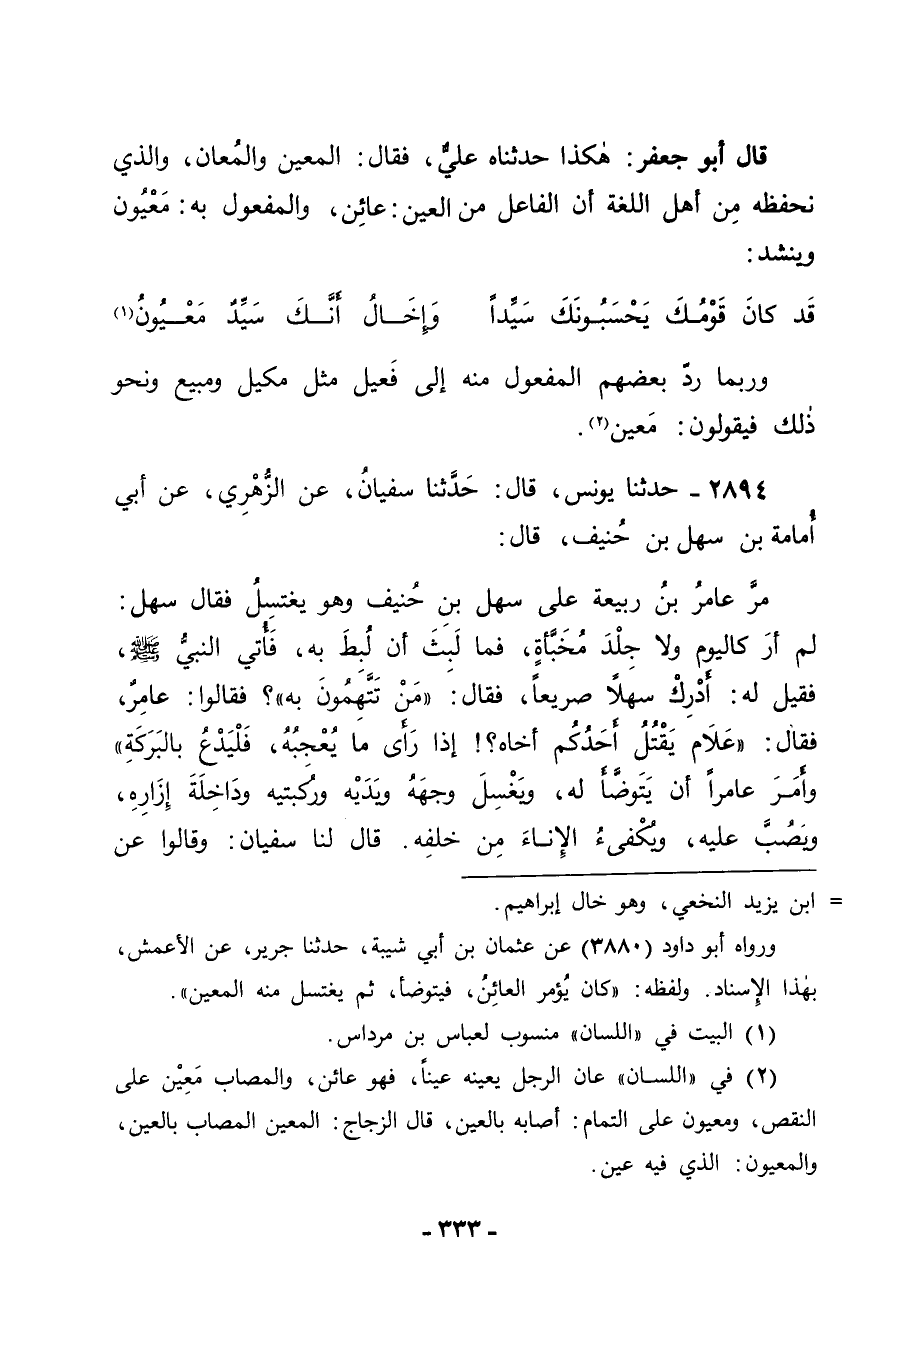 قال أبو جعفر: هٰكذا حدثناه عليٌّ، فقال: المعين والمُعان، والذي
نحفظه مِن أهل اللغة أن الفاعل من العين: عائِن، والمفعول به: مَعْيُون
وينشد:
قَد كانَ قَوْمُـكَ يَحْسَبُـونَكَ سَيِّداً وَإِخَـــالُ أَنَّـــكَ سَيِّدٌ مَعْـــيُونُ(١)
وربما ردّ بعضهم المفعول منه إلى فَعيل مثل مكيل ومبيع ونحو
ذٰلك فيقولون: مَعين(٢).
٢٨٩٤ - حدثنا يونس، قال: حَدَّثنا سفيانُ، عن الزُّهْرِي، عن أبي
أُمامة بن سهل بن حُنيف، قال:
مرَّ عامرُ بنُ ربيعة على سهل بنِ حُنيف وهو يغتسِلُ فقال سهل:
لم أرَ كاليوم ولا جِلْدَ مُخَبَّأةٍ، فما لَبِثَ أن لُبِطَ به، فَأُتي النبيُّ ﷺ،
فقيل له: أَدْرِكْ سهلًا صريعاً، فقال: «مَنْ تَتَّهِمُونَ به»؟ فقالوا: عامرٌ،
فقال: «عَلَام يَقْتُلُ أَحَدُكُم أخاه؟! إذا رَأى ما يُعْجِبُهُ، فَلْيَدْعُ بالبَرَكَةِ»
وأَمَـرَ عامراً أن يَتَوضَّأَ له، ويَغْسِلَ وجهَهُ ويَدَيْه ورُكبتيه ودَاخِلَةَ إزَارِهِ،
ويَصُبَّ عليه، ويُكْفىءُ الإنـاءَ مِن خلفِه. قال لنا سفيان: وقالوا عن
= ابن يزيد النخعي، وهو خال إبراهيم.
ورواه أبو داود (٣٨٨٠) عن عثمان بن أبي شيبة، حدثنا جرير، عن الأعمش،
بهٰذا الإسناد. ولفظه: «كان يُؤمر العائنُ، فيتوضأ، ثم يغتسل منه المعين».
(١) البيت في «اللسان» منسوب لعباس بن مرداس.
(٢) في «اللسـان» عان الرجل يعينه عيناً، فهو عائن، والمصاب مَعِيْن على
النقص، ومعيون على التمام: أصابه بالعين، قال الزجاج: المعين المصاب بالعين،
والمعيون: الذي فيه عين.
- ٣٣٣ -